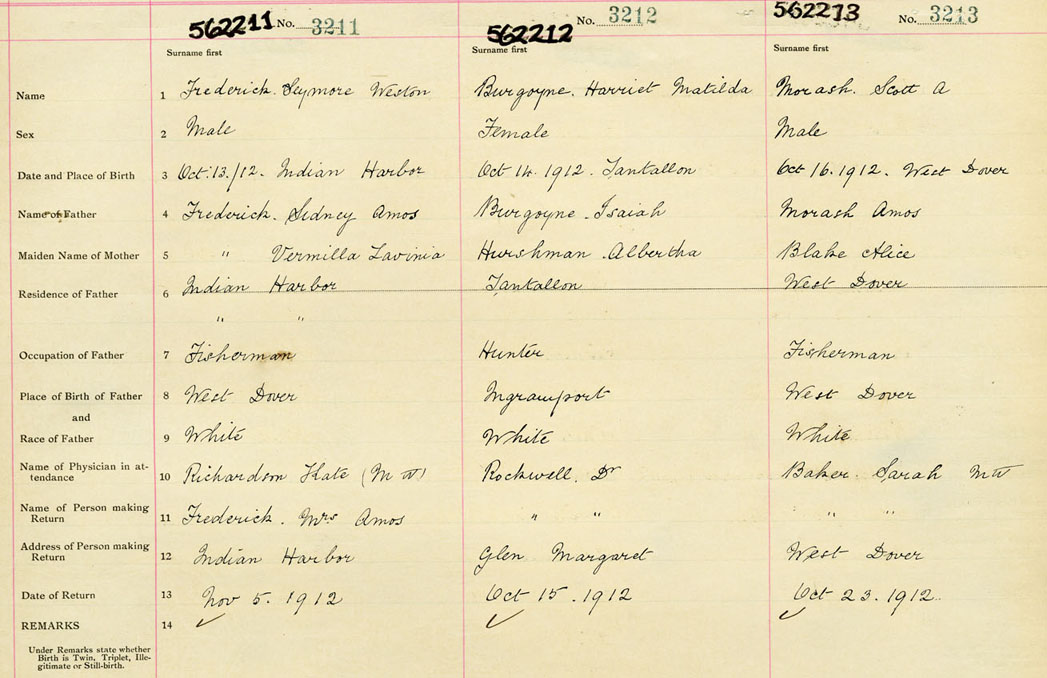 562211 No. 3211 562212 No. 3212 562213 No. 3213
Surname first Surname first Surname first
Name 1 Frederick. Seymore Weston Burgoyne. Harriet Matilda Morash. Scott A
Sex 2 Male Female Male
Date and Place of Birth 3 Oct. 13./12. Indian Harbor Oct 14. 1912. Tantallon Oct 16. 1912. West Dover
Name of Father 4 Frederick. Sidney Amos Burgoyne. Isaiah Morash Amos
Maiden Name of Mother 5 " Vermilla Lavinia Hurshman. Albertha Blake Alice
Residence of Father 6 Indian Harbor Tantallon West Dover
" "
Occupation of Father 7 Fisherman Hunter Fisherman
Place of Birth of Father 8 West Dover Ingramport West Dover
and
Race of Father 9 White White White
Name of Physician in at-
tendance 10 Richardson Kate (M W) Rockwell. Dr Baker. Sarah M W
Name of Person making
Return 11 Frederick. Mrs Amos " " " "
Address of Person making
Return 12 Indian Harbor Glen Margaret West Dover
Date of Return 13 Nov 5. 1912 Oct 15. 1912 Oct 23. 1912.
REMARKS 14 ✓ ✓ ✓
Under Remarks state whether
Birth is Twin, Triplet, Ille-
gitimate or Still-birth.